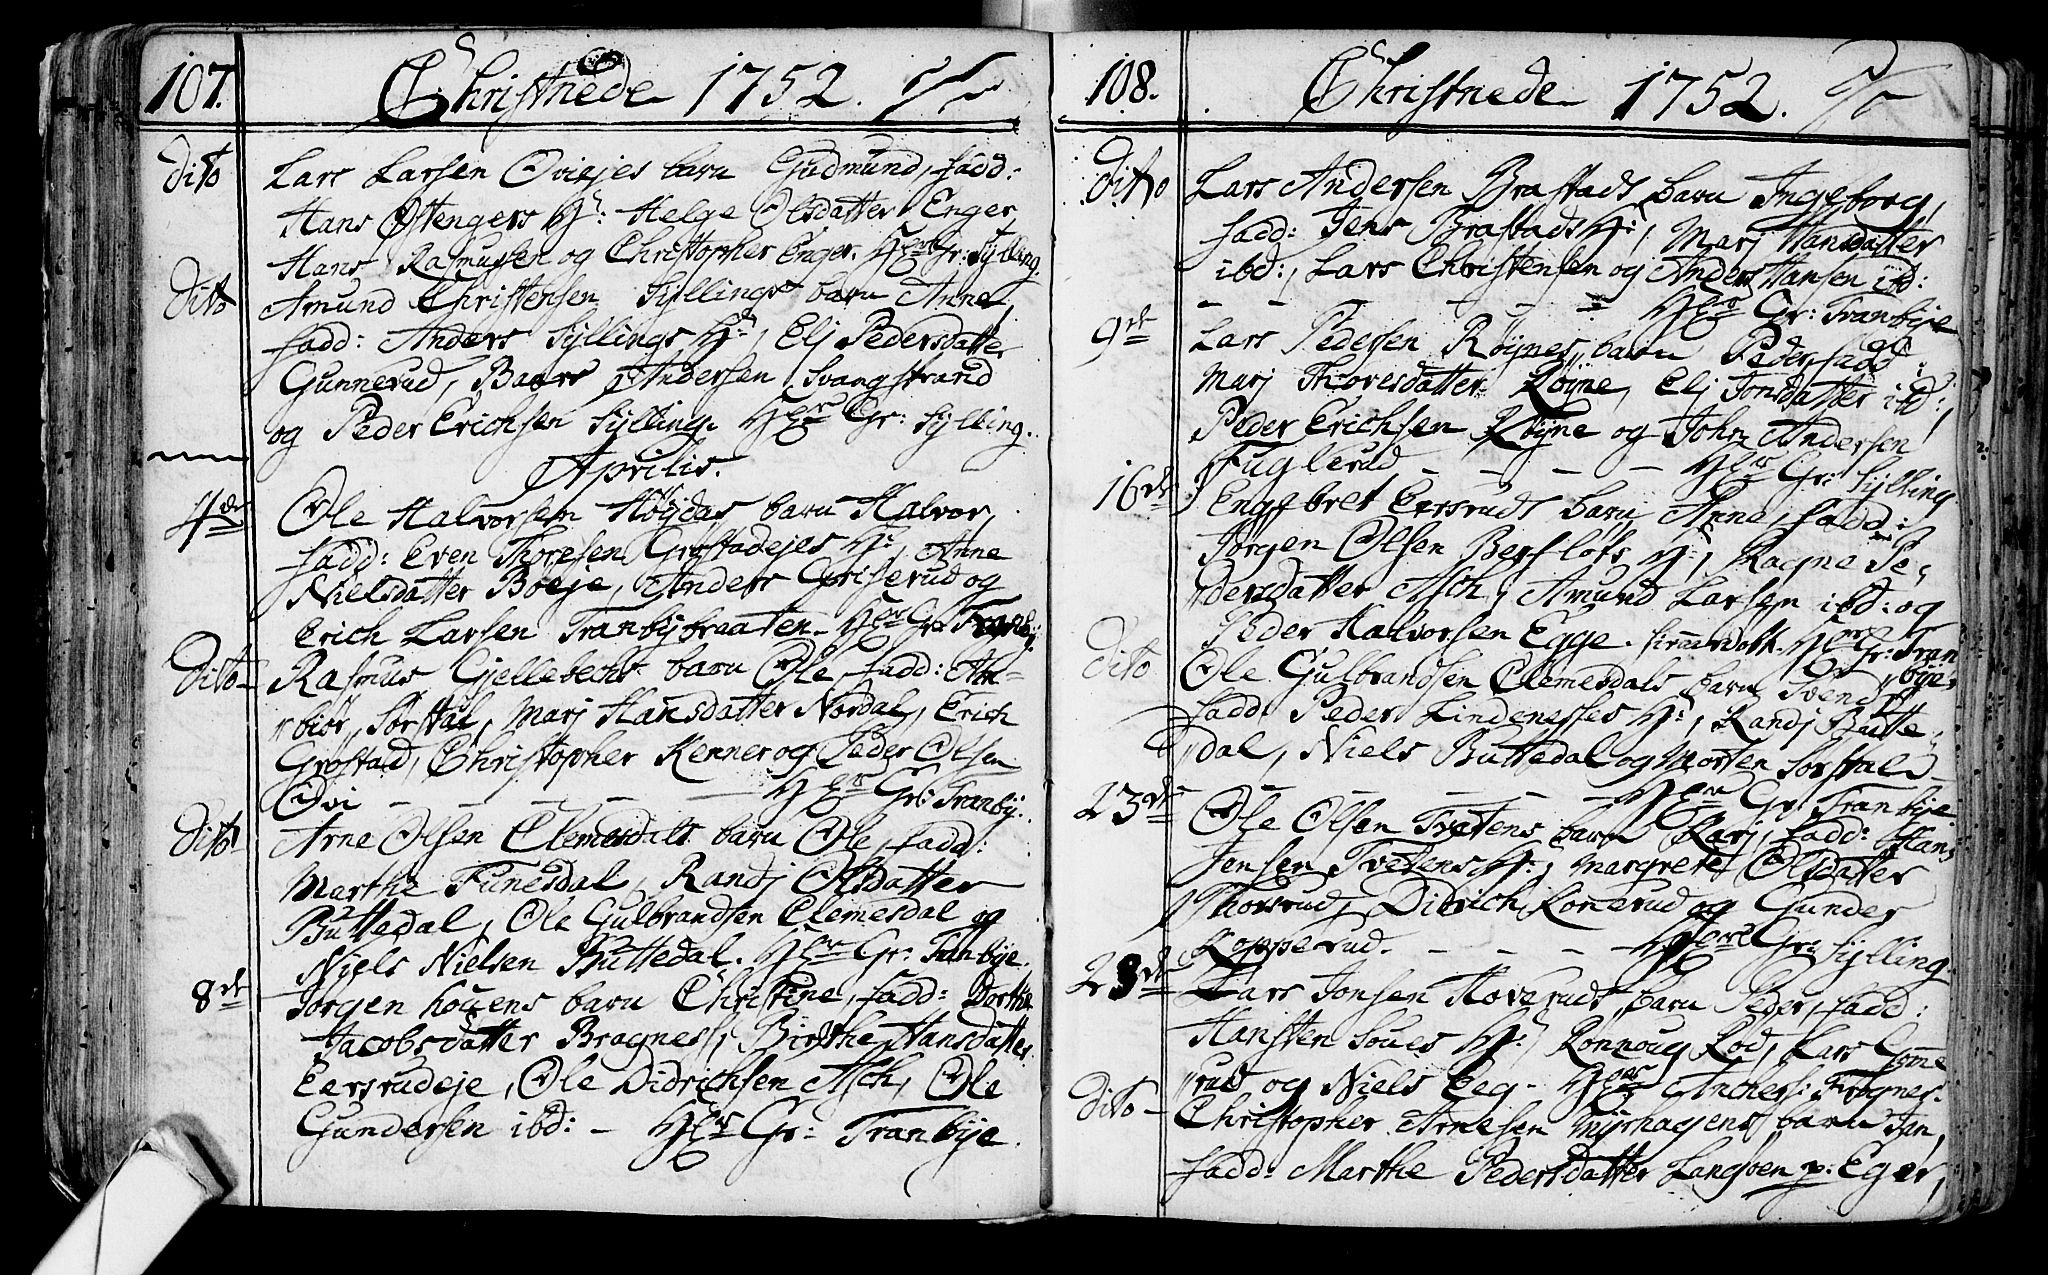 107. Christnede 1752.
dito Lars Larsen Oviejes barn Gudmund, fadd:
Hans Østengers H: Helge Olsdatter Enger,
Hans Rasmussen og Christopher Enger. Gr: Sylling.
dito Amund Christensen Syllings barn Anne,
fadd: Anders Syllings H:, Elj Pedersdatter
Gunnerud, Andersen Svangstrand
og Peder Erichsen Sylling. Gr: Sylling.
Aprilis.
4de Ole Halvorsen Høgdas barn Halvor,
fadd: Even Thoresen Grostadejes H:, Anne
Nielsdatter Boeje, Anders Griserud og
Erich Larsen Tranbybraaten Gr: Tranby.
Dito Rasmus Gjellebechs barn Ole, fadd: An-
biør Sørstal, Marj Hansdatter Nordal, Erich
Grostad, Christopher Kenner og Peder Olsen
Ovi - - - - Gr: Tranby:
Dito Arne Olsen Clemesdals barn Ole, fadd:
Marthe Funesdal, Randj Olsdatter
Buttedal, Ole Gulbrandsen Clemesdal og
Niels Nielsen Buttedal. Gr: Tranbye.
8de Jørgen houens barn Christine, fadd: Dorthe
Jacobsdatter Bragnes, Birthe Hansdatter
Eersrudeje, Ole Didrichsen Asch, Ole
Gundersen ibd: - Gr: Tranbye.
108. Christnede 1752.
dito Lars Andersen Brastads barn Ingeborg,
fadd: Jens Brastads H:, Marj Hansdatter
ibd:, Lars Christensen og Anders Hansen ibd:
- - - - - Gr: Tranbye
9de Lars Pedersen Røynes barn Peder, fadd:
Marj Thoresdatter Røyne, Elj Jonsdatter ibd:,
Peder Erichsen Røyne og John Andersen
Fuglerud - - - - Gr: Sylling.
16de Engebret Eersruds barn Anne, fadd:
Jørgen Olsen Bersløfs H:, Ragne Pe-
dersdatter Asch, Amund Larsen ibd: og
Peder Halvorsen Egge. Gr: Tran
bye.
dito Ole Gulbrandsen Clemesdals barn Svend,
fadd: Peder Lindenesses H:, Randj Butte-
dal, Niels Buttedal og Morten Sørstal
- - - - - - Gr: Tranbye
23de Ole Olsen Tvetens barn Karj, fadd: Hans
Jensen Tvetens H:, Margrete Olsdatter
Thorsrud, Didrich Konerud og Gunder
Kopperud. - - - - Gr: Sylling.
23de Lars Jonsen Hoveruds barn Peder, fadd:
Hansten Soues H:, Ronnoug Rod, Lars Gome
rud og Niels Eeg - Anchers: Frognes.
dito - Christopher Arnesen Myrhagens barn Jan,
fadd: Marthe Pedersdatter Langøen p: Eger,